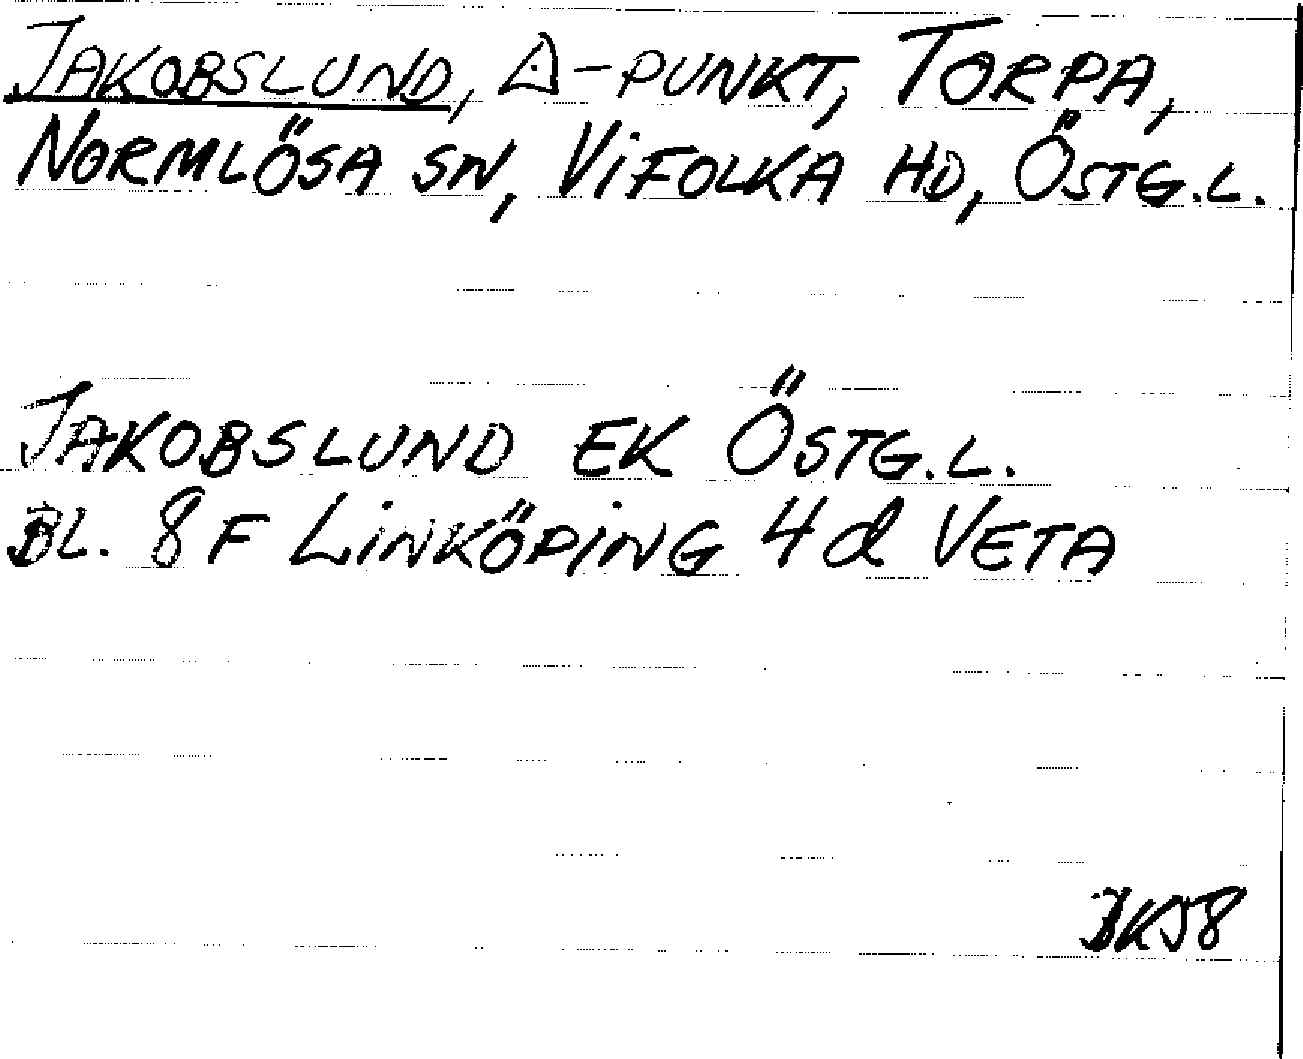 JAKOBSLUND, ◬-PUNKT, TORPA,
NORMLÖSA SN, VIFOLKA HD, ÖSTG.L.
JAKOBSLUND EK ÖSTG.L.
BL. 8F LINKÖPING 4d VETA
BK58